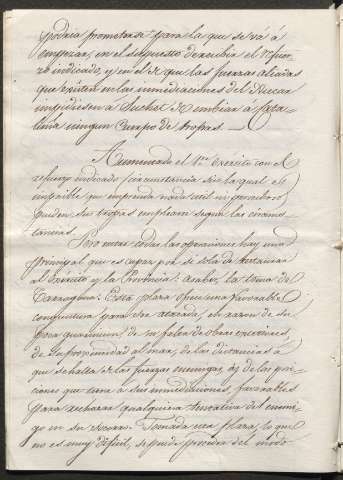 podria prometerse para la que se vá á
empezar, en el supuesto de recibir el refuer-
zo indicado, y en el de que las fuerzas aliadas
que existen en las inmediaciones del Jucar
impidiesen á Suchet de embiar á Cata-
luña ningun Cuerpo de tropas.
Aumentado el 1er. Exército con el
refuerzo indicado (circunstancia sin la qual es
imposible que emprenda nada util ni gloriosa)
pueden sus tropas emplearse segun las circuns-
tancias.
Pero entre todas las operaciones hay una
principal que es capaz por si sola de restaurar
al Exército y la Provincia: á saber, la toma de
Tarragona: Esta plaza ofrece una favorable
conyuntura para ser atacada, en razon de su
poca guarnicion, de su falta de obras exteriores,
de su proximidad al mar, de las distancias á
que se hallan las fuerzas enemigas, y de las posi-
ciones que tiene á sus inmediaciones, favorables
para rechazar qualquiera tentativa del enemi-
go en su socorro. Tomada esta plaza, lo que
no es muy dificil, se puede proceder del modo